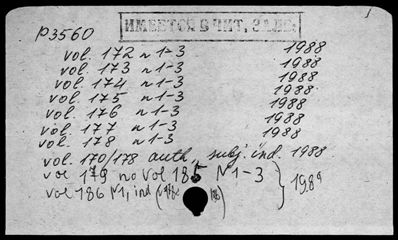 ИМЕЕТСЯ В ЧИТ. ЗАЛЕ.
P3560
vol. 172 n 1-3 1988
vol. 173 n 1-3 1988
vol. 174 n 1-3 1988
vol. 175 n 1-3 1988
vol. 176 n 1-3 1988
vol. 177 n 1-3 1988
vol. 178 n 1-3 1988
vol. 170/178 auth, subj. ind. 1988
vol 179 no vol 185 N 1-3
vol 186 N1, ind 1989